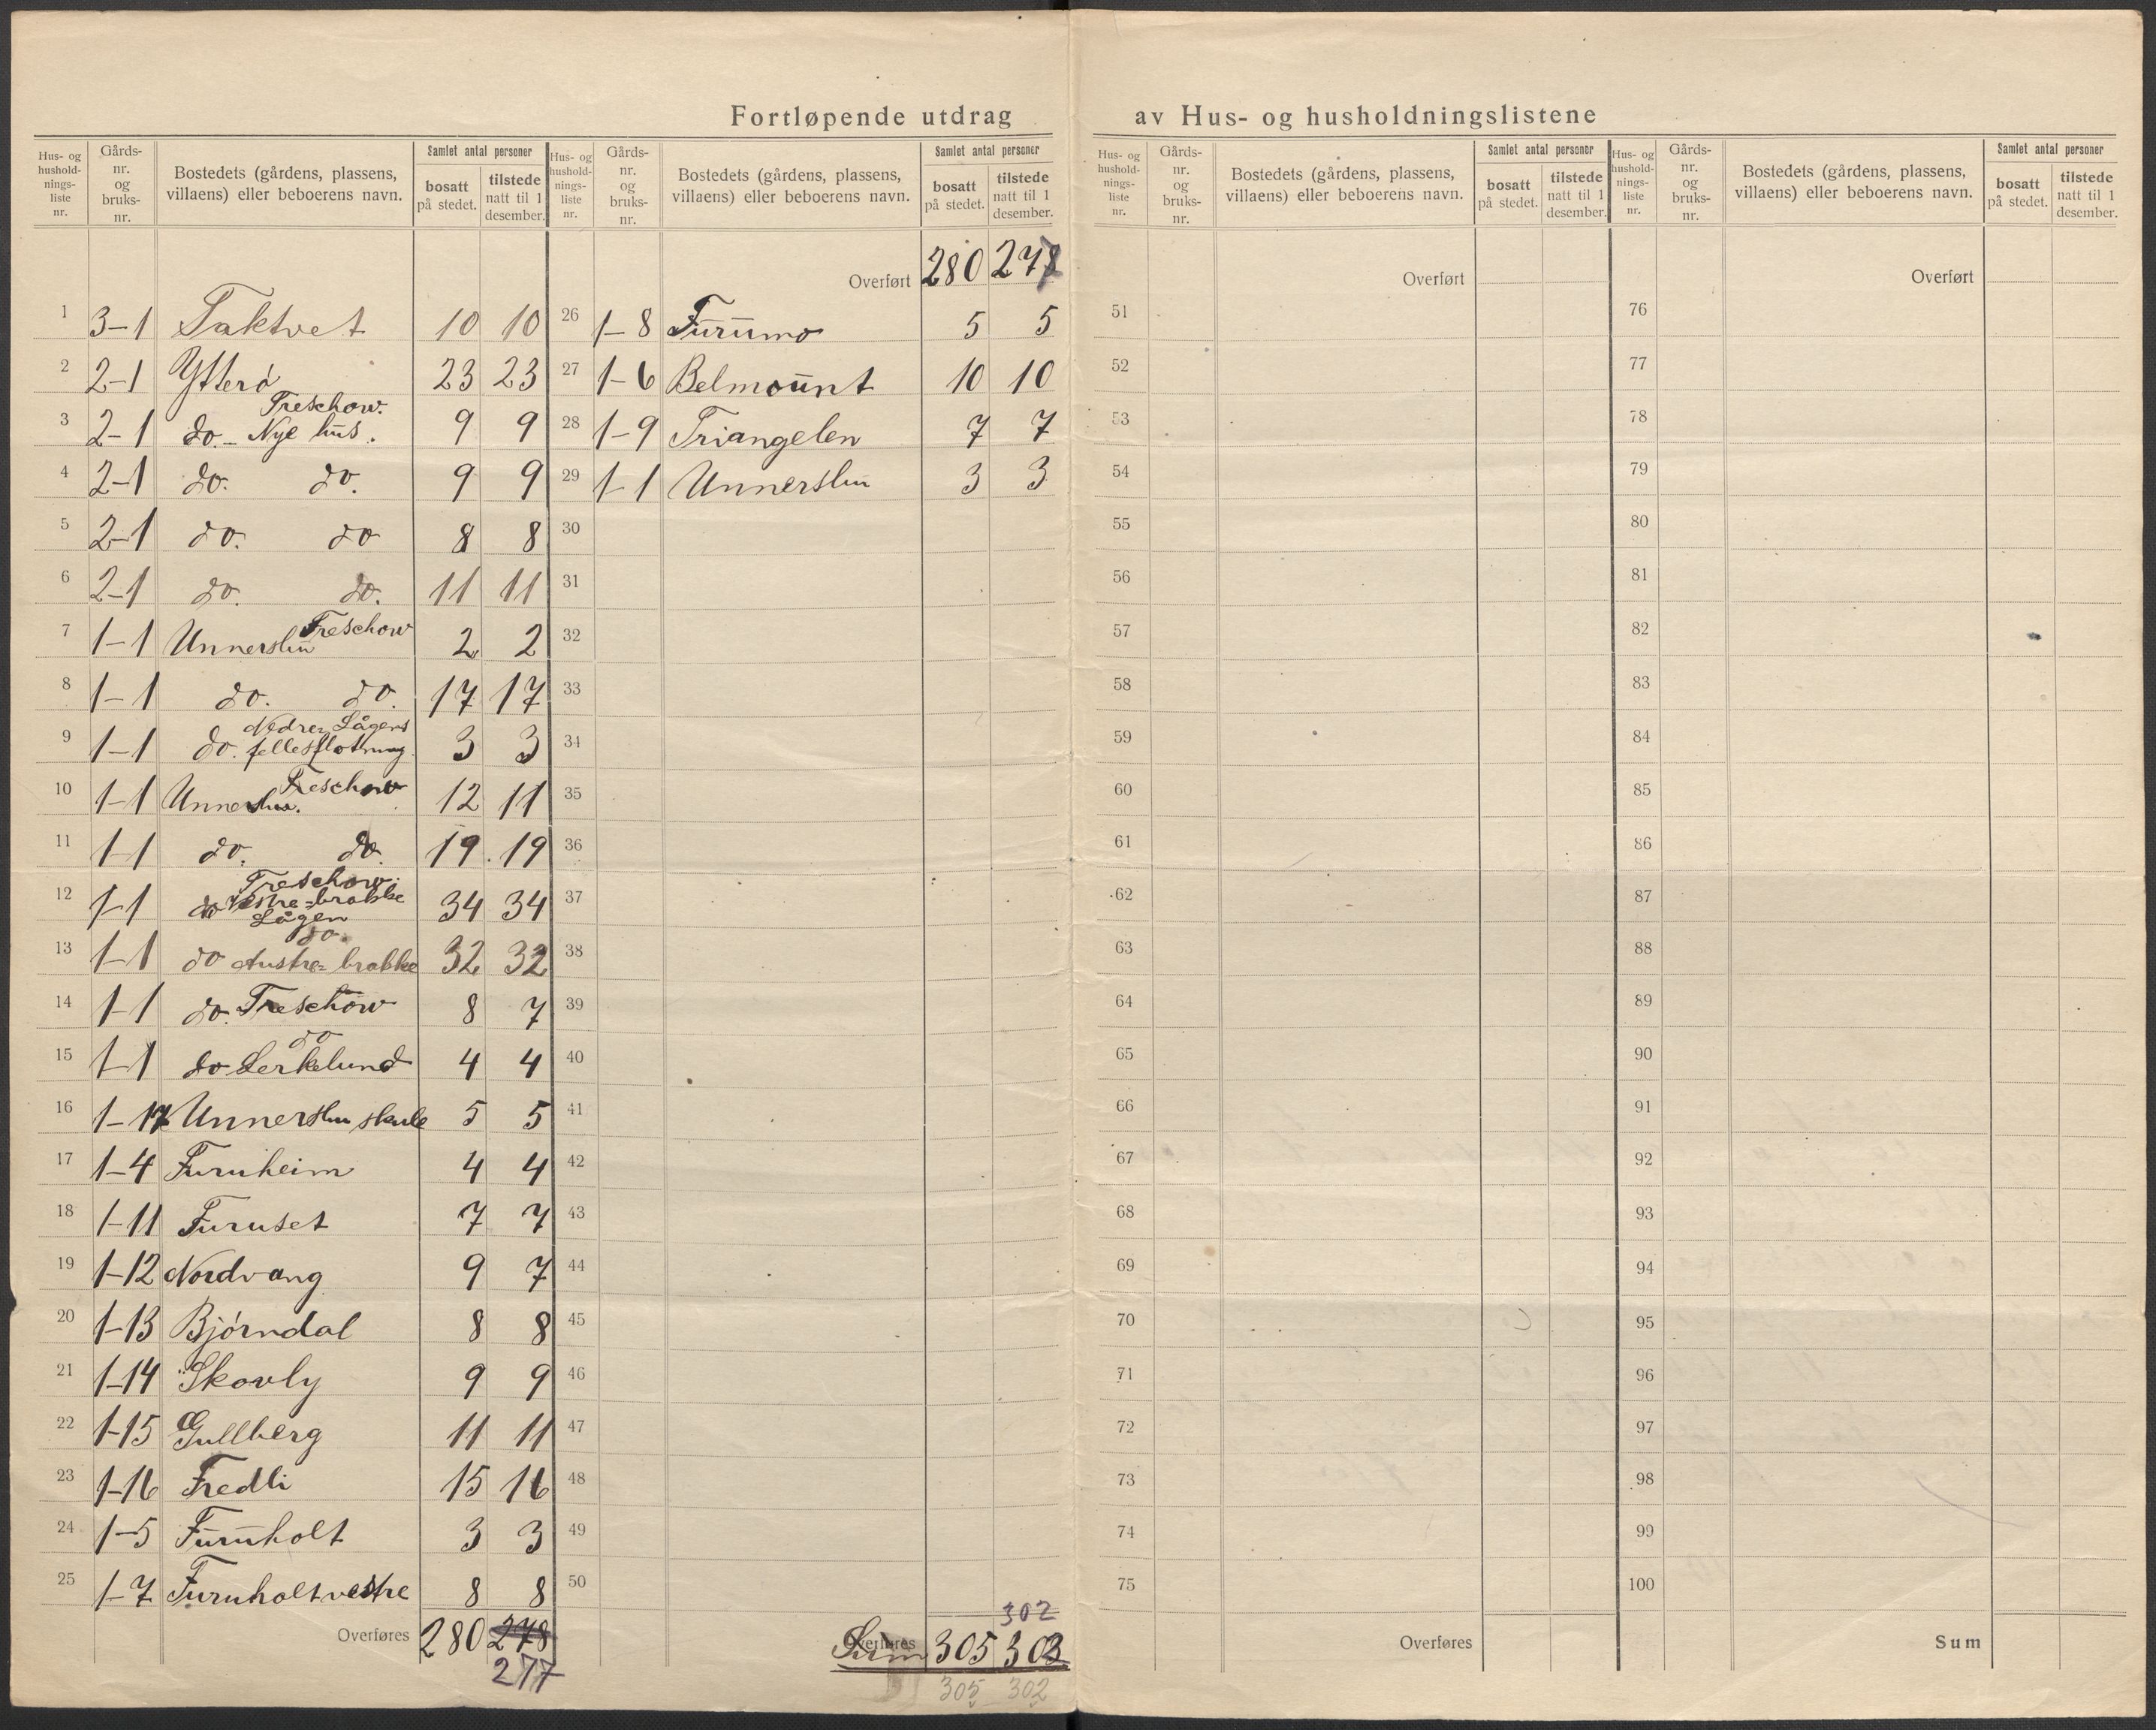 Fortløpende utdrag av Hus- og husholdningslistene
Hus- og hushold-nings-liste nr. Gårds-nr. og bruks-nr. Bostedets (gårdens, plassens, villaens) eller beboerens navn. Samlet antal personer bosatt på stedet. tilstede natt til 1 desember.
1 3-1 Taktvet 10 10
2 2-1 Ytterø 23 23
3 2-1 do. Treschow. Nye hus. 9 9
4 2-1 do. do. 9 9
5 2-1 do. do 8 8
6 2-1 do. do. 11 11
7 1-1 Unnerslu Treschow 2 2
8 1-1 do. do. 17 17
9 1-1 do. Nedre Lågens fellesfløtning 3 3
10 1-1 Unnerslu. Treschow 12 11
11 1-1 do. do. 19 19
12 1-1 do Treschow. Vestre-brakke Lågen 34 34
13 1-1 do do. Austre-brakke 32 32
14 1-1 do. Treschow 8 7
15 1-1 do do Lerkelund 4 4
16 1-17 Unnerslu skule 5 5
17 1-4 Furuheim 4 4
18 1-11 Furuset 7 7
19 1-12 Nordvang 9 7
20 1-13 Bjørndal 8 8
21 1-14 Skovly 9 9
22 1-15 Gullberg 11 11
23 1-16 Fredli 15 16
24 1-5 Furuholt 3 3
25 1-7 Furuholt vestre 8 8
Overføres 280 278
277
Hus- og hushold-nings-liste nr. Gårds-nr. og bruks-nr. Bostedets (gårdens, plassens, villaens) eller beboerens navn. Samlet antal personer bosatt på stedet. tilstede natt til 1 desember.
Overført 280 277
26 1-8 Furumo 5 5
27 1-6 Belmount 10 10
28 1-9 Triangelen 7 7
29 1-1 Unnerslu 3 3
30
31
32
33
34
35
36
37
38
39
40
41
42
43
44
45
46
47
48
49
50
302
Overføres Sum 305 303
305 302
Hus- og hushold-nings-liste nr. Gårds-nr. og bruks-nr. Bostedets (gårdens, plassens, villaens) eller beboerens navn. Samlet antal personer bosatt på stedet. tilstede natt til 1 desember.
Overført
51
52
53
54
55
56
57
58
59
60
61
62
63
64
65
66
67
68
69
70
71
72
73
74
75
Overføres
Hus- og hushold-nings-liste nr. Gårds-nr. og bruks-nr. Bostedets (gårdens, plassens, villaens) eller beboerens navn. Samlet antal personer bosatt på stedet. tilstede natt til 1 desember.
Overført
76
77
78
79
80
81
82
83
84
85
86
87
88
89
90
91
92
93
94
95
96
97
98
99
100
Sum